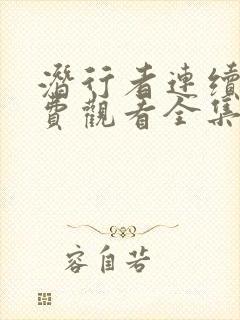 潛行者連續
費觀看全集
容自若